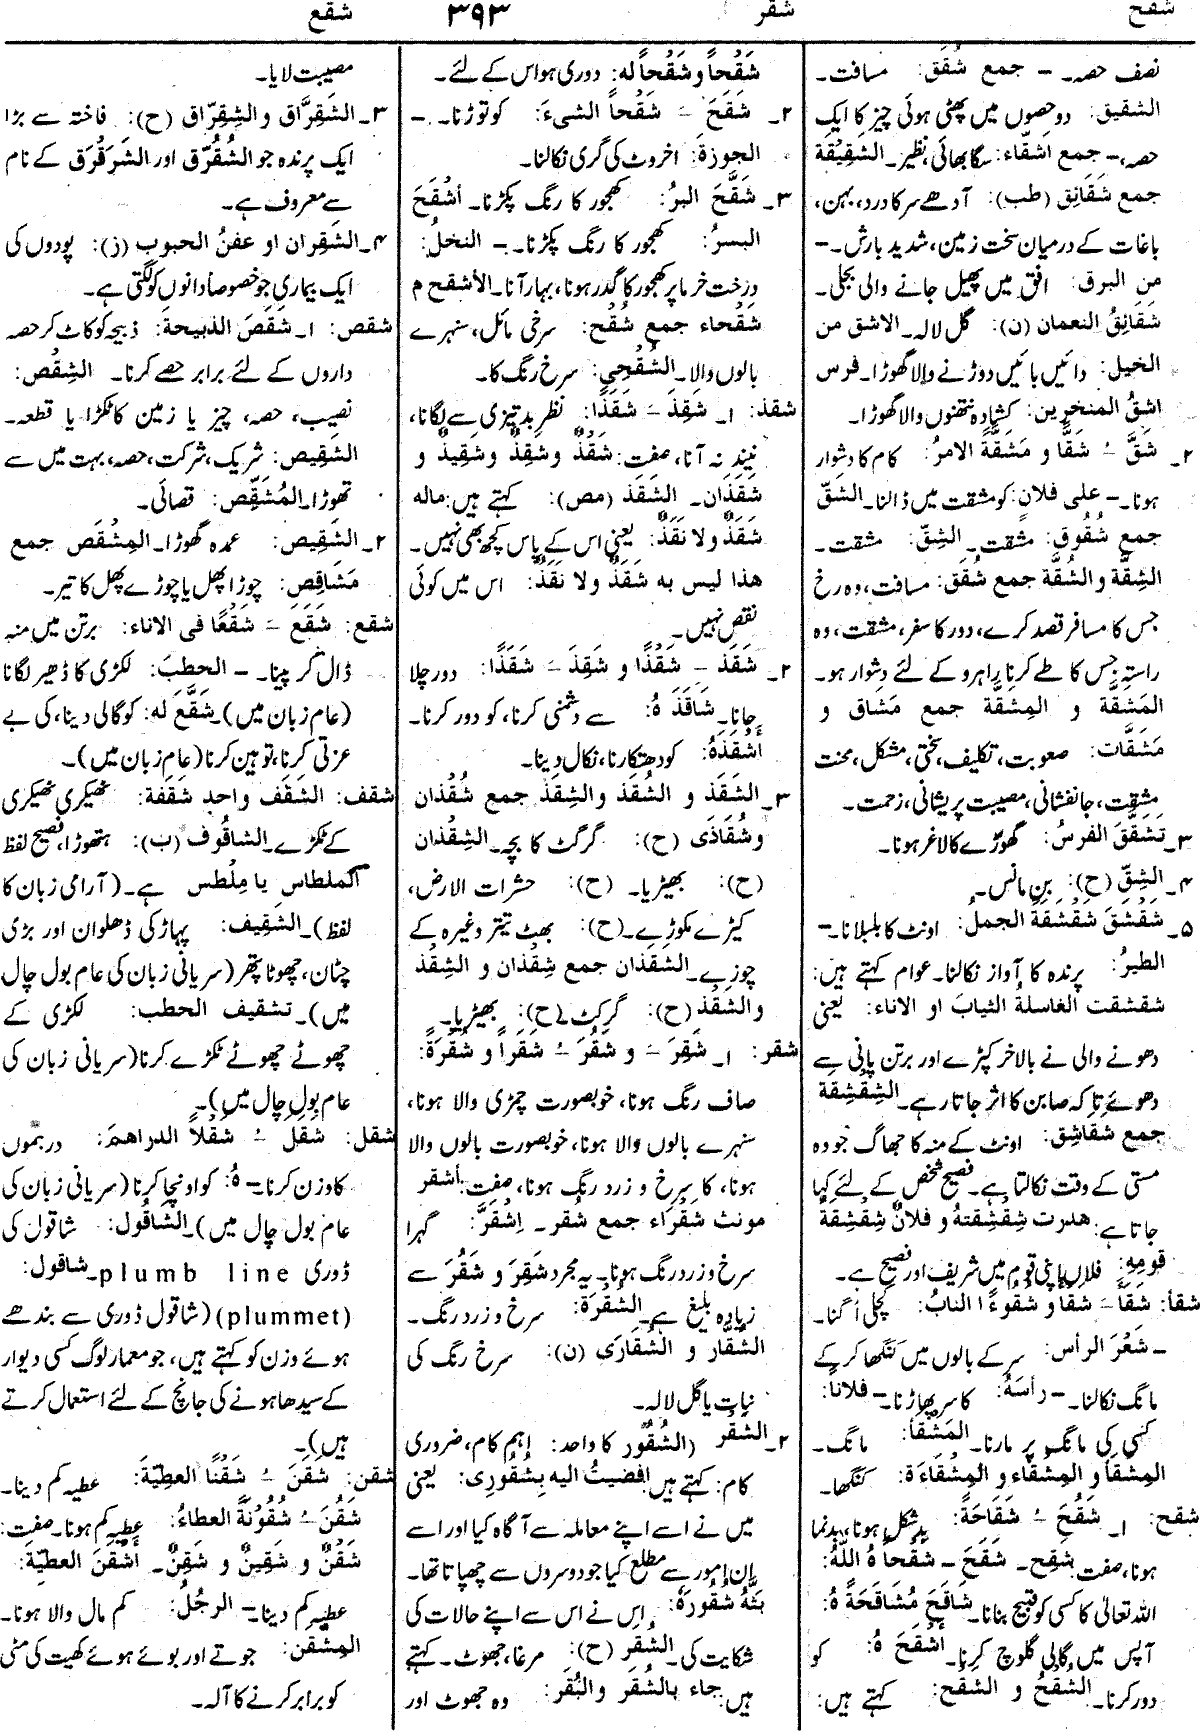 شقح
شقر
۳۹۳
شقع
نصف حصہ۔ – جمع شُقَق: مسافت۔
الشقیق: دو حصوں میں پھٹی ہوئی چیز کا ایک
حصہ، – جمع اشقّاء: سگا بھائی، نظیر۔ الشَقِیْقَة
جمع شَقَائِق (طب): آدھے سر کا درد، بہن،
باغات کے درمیان سخت زمین، شدید بارش۔ –
من البرق: افق میں پھیل جانے والی بجلی۔
شَقَائِقُ النعمان (ن): گل لالہ۔ الاشق من
الخیل: دائیں بائیں دوڑنے والا گھوڑا۔ فرس
اشقُّ المنخرین: کشادہ نتھنوں والا گھوڑا۔
۲۔ شَقَّ ـُ شَقًّا و مَشَقَّةً الامرُ: کام کا دشوار
ہونا۔ – علی فلان: کو مشقت میں ڈالنا۔ الشَقّ
جمع شُقُوق: مشقت۔ الشِقّ: مشقت۔
الشِقَّة و الشُقَّة جمع شُقَق: مسافت، وہ رخ
جس کا مسافر قصد کرے، دور کا سفر، مشقت، وہ
راستہ جس کا طے کرنا راہرو کے لئے دشوار ہو۔
المَشَقَّة و المِشَقَّة جمع مَشَاق و
مَشَقَّات: صعوبت، تکلیف، سختی، مشکل، محنت
مشقت، جانفشانی، مصیبت پریشانی، زحمت۔
۳۔ تَشَقَّقَ الفرسُ: گھوڑے کا لاغر ہونا۔
۴۔ الشِقّ (ح): بن مانس۔
۵۔ شَقْشَقَ شَقْشَقَةً الجمل: اونٹ کا بلبلانا۔ –
الطیرُ: پرندہ کا آواز نکالنا۔ عوام کہتے ہیں:
شقشقت الغاسلةُ الثیابَ او الاناء: یعنی
دھونے والی نے بالآخر کپڑے اور برتن پانی سے
دھوئے تاکہ صابن کا اثر جاتا رہے۔ الشِقْشِقَة
جمع شَقَاشِق: اونٹ کے منہ کا جھاگ جو وہ
مستی کے وقت نکالتا ہے۔ فصیح شخص کے لئے کہا
جاتا ہے: هدرت شِقْشِقتهُ و فلانٌ شِقْشِقةُ
قومِهِ: فلاں اپنی قوم میں شریف اور فصیح ہے۔
شقأ: شَقَأَ ـَ شَقأ و شُقوءً ا النابُ: کچلی اُگنا۔
– شَعْرَ الرأس: سر کے بالوں میں کنگھا کر کے
مانگ نکالنا۔ – رأسَهُ: کا سر پھاڑنا۔ – فلانا:
کسی کی مانگ پر مارنا۔ المَشْقَأ: مانگ۔
المِشْقَأ و المِشْقَاء و المِشْقَاءَة: کنگھا۔
شقح: ۱۔ شَقُحَ ـُ شَقَاحَةً: بدشکل ہونا، بدنما
ہونا، صفت شَقِح۔ شَقَحَ ـَ شَقْحاً هُ اللّٰهُ:
اللہ تعالیٰ کا کسی کو قبیح بنانا۔ شَاقَحَ مُشَاقَحَةً هُ:
آپس میں گالی گلوچ کرنا۔ اَشْقَحَ هُ: کو
دور کرنا۔ الشُقْحُ و الشَقح: کہتے ہیں:
شَقْحاً و شُقْحاً له: دوری ہو اس کے لئے۔
۲۔ شَقَحَ ـَ شَقْحاً الشیءَ: کو توڑنا۔ –
الجوزة: اخروٹ کی گری نکالنا۔
۳۔ شَقَّحَ البرُ: کھجور کا رنگ پکڑنا۔ اَشْقَحَ
البسرُ: کھجور کا رنگ پکڑنا۔ – النخلُ:
درخت خرما پر کھجور کا گدر ہونا، بہار آنا۔ الأشقح م
شَقْحاء جمع شُقْح: سرخی مائل، سنہرے
بالوں والا۔ الشُقْحِی: سرخ رنگ کا۔
شقذ: ۱۔ شَقِذَ ـَ شَقَذًا: نظر بد تیزی سے لگانا،
نیند نہ آنا، صفت: شَقِذٌ وشَقِذٌ وشَقِیذٌ و
شَقَذَان۔ الشَقَذ (مص): کہتے ہیں: ماله
شَقَذٌ ولا نَقَذٌ: یعنی اس کے پاس کچھ بھی نہیں۔
هذا لیس به شَقَذٌ ولا نَقَذٌ: اس میں کوئی
نقص نہیں۔
۲۔ شَقَذَ ـِ شَقْذًا و شَقِذَ ـَ شَقَذًا: دور چلا
جانا۔ شَاقَذَ هُ: سے دشمنی کرنا، کو دور کرنا۔
اَشْقَذَهُ: کو دھتکارنا، نکال دینا۔
۳۔ الشَقَذ و الشُقَذ والشِقَذ جمع شُقْذان
و شُقَاذَی (ح): گرگٹ کا بچہ۔ الشِقْذان
(ح): بھیڑیا۔ (ح): حشرات الارض،
کیڑے مکوڑے۔ (ح): بھٹ تیتر وغیرہ کے
چوزے۔ الشَقَذان جمع شِقْذان و الشِقْذ
و الشَقَذ (ح): گرگٹ۔ (ح): بھیڑیا۔
شقر: ۱۔ شَقِرَ ـَ و شَقُرَ ـُ شَقَراً و شُقْرَةً:
صاف رنگ ہونا، خوبصورت چمڑی والا ہونا،
سنہرے بالوں والا ہونا، خوبصورت بالوں والا
ہونا، کا سرخ و زرد رنگ ہونا، صفت: أشقر
مونث شقْراء جمع شقر۔ اِشقَرَّ: گہرا
سرخ و زرد رنگ ہونا۔ یہ مجرد شَقِرَ و شَقُرَ سے
زیادہ بلیغ ہے۔ الشُقْرَة: سرخ و زرد رنگ۔
الشُقّار و الشُقّارَی (ن): سرخ رنگ کی
نبات یا گل لالہ۔
۲۔ الشَقْر (الشُقُور کا واحد: اہم کام، ضروری
کام: کہتے ہیں: افضیتُ الیه بِشُقُورِی: یعنی
میں نے اسے اپنے معاملہ سے آگاہ کیا اور اسے
ان امور سے مطلع کیا جو دوسروں سے چھپاتا تھا۔
بَثَّهُ شُقُورَهُ: اس نے اس سے اپنے حالات کی
شکایت کی۔ الشَقِر (ح): مرغا، جھوٹ۔ کہتے
ہیں: جاء بالشُقَر والبُقَر: وہ جھوٹ اور
مصیبت لایا۔
۳۔ الشَقِرَّاق و الشِقِرّاق (ح): فاختہ سے بڑا
ایک پرندہ جو الشُقُرَّق اور الشَرَقْرَق کے نام
سے معروف ہے۔
۴۔ الشَقِران او عفنُ الحبوب (ز): پودوں کی
ایک بیماری جو خصوصاً دانوں کو لگتی ہے۔
شقص: ۱۔ شَقَّصَ الذبیحة: ذبیحہ کو کاٹ کر حصہ
داروں کے لئے برابر حصے کرنا۔ الشِقْص:
نصیب، حصہ، چیز یا زمین کا ٹکڑا یا قطعہ۔
الشَقِیص: شریک، شرکت، حصہ، بہت میں سے
تھوڑا۔ المُشَقِّص: قصائی۔
۲۔ الشَقِیص: عمدہ گھوڑا۔ المِشْقَص جمع
مَشَاقِص: چوڑا پھل یا چوڑے پھل کا تیر۔
شقع: شَقَعَ ـَ شَقْعًا فی الاناء: برتن میں منہ
ڈال کر پینا۔ – الحطبَ: لکڑی کا ڈھیر لگانا
(عام زبان میں)۔ شَقَّعَ له: کو گالی دینا، کی بے
عزتی کرنا، توہین کرنا (عام زبان میں)۔
شقف: الشَقَف واحد شَقَفَة: ٹھیکری ٹھیکری
کے ٹکڑے۔ الشاقُوف (ب): ہتھوڑا، فصیح لفظ
الملطاس یا مِلْطس ہے۔ (آرامی زبان کا
لفظ)۔ الشَقِیف: پہاڑ کی ڈھلوان اور بڑی
چٹان، چھوٹا پتھر (سریانی زبان کی عام بول چال
میں)۔ تشقیف الحطب: لکڑی کے
چھوٹے چھوٹے ٹکڑے کرنا (سریانی زبان کی
عام بول چال میں)۔
شقل: شَقَلَ ـُ شَقْلاً الدراهمَ: درہموں
کا وزن کرنا۔ – هُ: کو اونچا کرنا (سریانی زبان کی
عام بول چال میں)۔ الشاقُول: شاقول کی
ڈوری plumb line۔ شاقول:
(plummet) (شاقول ڈوری سے بندھے
ہوئے وزن کو کہتے ہیں، جو معمار لوگ کسی دیوار
کے سیدھا ہونے کی جانچ کے لئے استعمال کرتے
ہیں)۔
شقن: شَقَنَ ـُ شَقْنًا العطیَّةَ: عطیہ کم دینا۔
شَقُنَ ـُ شُقُوْنَةً العطاءُ: عطیہ کم ہونا۔ صفت:
شَقْنٌ و شَقِینٌ و شَقِنٌ۔ أَشْقَنَ العطیَّةَ:
عطیہ کم دینا۔ – الرجُلُ: کم مال والا ہونا۔
المِشْقَن: جوتے اور بوئے ہوئے کھیت کی مٹی
کو برابر کرنے کا آلہ۔